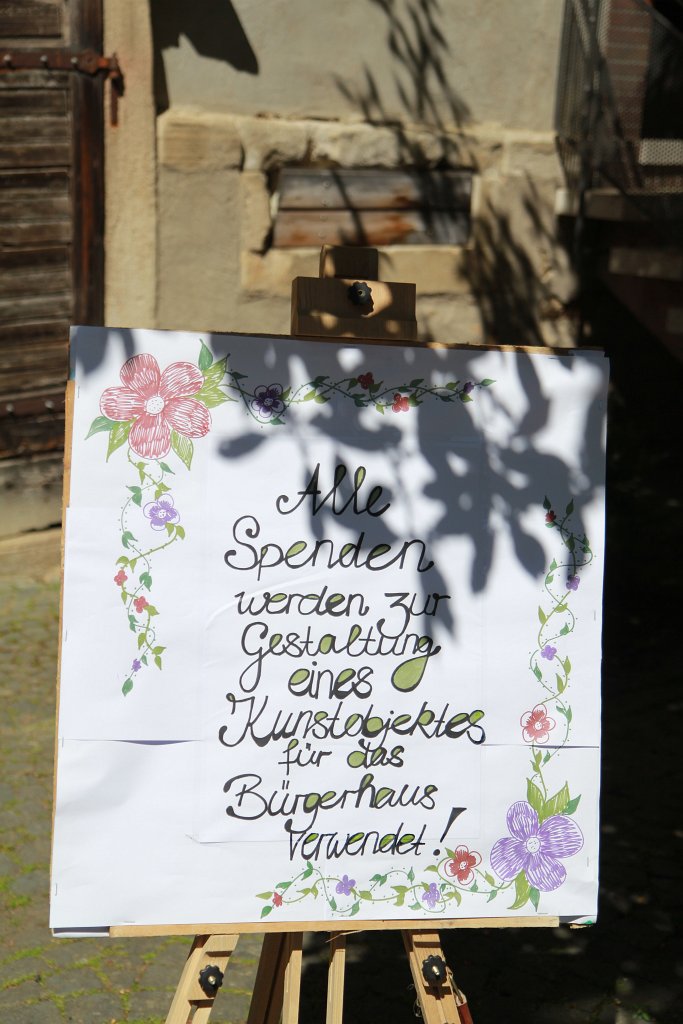 Alle
Spenden
werden zur
Gestaltung
eines
Kunstobjektes
für das
Bürgerhaus
verwendet!